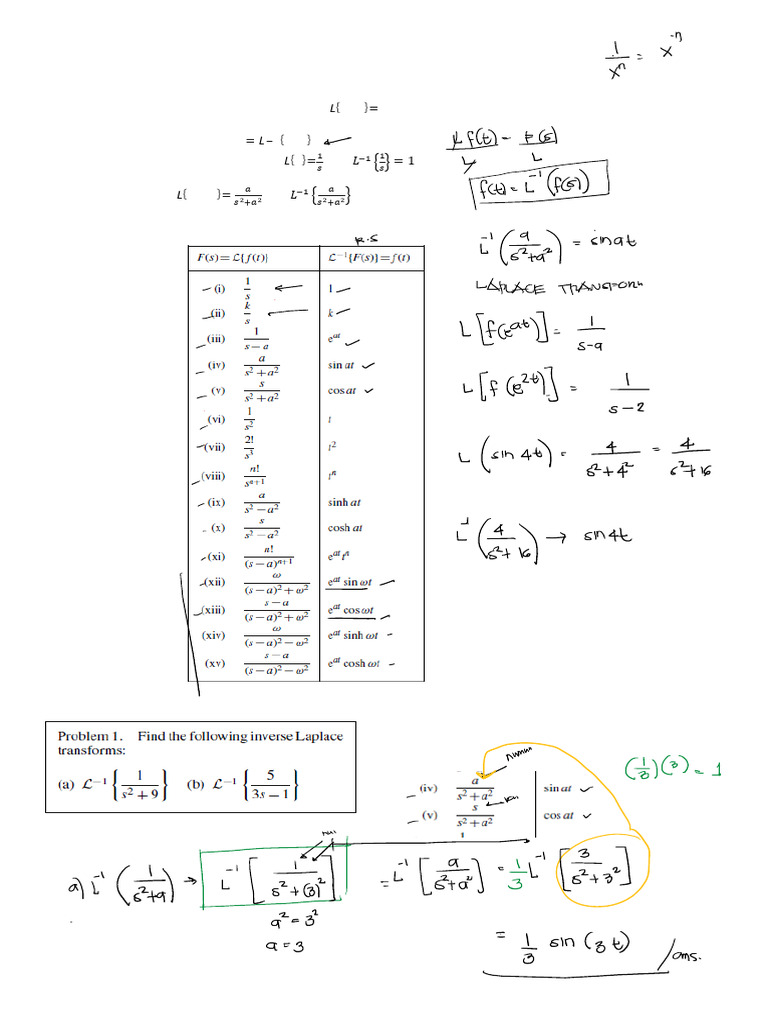 1/xⁿ = x⁻ⁿ
L{ }=
= L− { }
L{ }=1/s L⁻¹{1/s} = 1
L{ }= a/(s²+a²) L⁻¹{a/(s²+a²)}
L f(t) / L = F(s) / L
f(t) = L⁻¹(f(s))
R.S
F(s) = ℒ{f(t)} ℒ⁻¹{F(s)} = f(t)
(i) 1/s 1
(ii) k/s k
(iii) 1/(s − a) e^{at}
(iv) a/(s² + a²) sin at
(v) s/(s² + a²) cos at
(vi) 1/s² t
(vii) 2!/s³ t²
(viii) n!/s^{n+1} tⁿ
(ix) a/(s² − a²) sinh at
(x) s/(s² − a²) cosh at
(xi) n!/(s − a)^{n+1} e^{at} tⁿ
(xii) ω/((s − a)² + ω²) e^{at} sin ωt
(xiii) (s − a)/((s − a)² + ω²) e^{at} cos ωt
(xiv) ω/((s − a)² − ω²) e^{at} sinh ωt
(xv) (s − a)/((s − a)² − ω²) e^{at} cosh ωt
L⁻¹(a/(s²+a²)) = sin at
LAPLACE TRANSFORM
L[f(e^{at})] = 1/(s-a)
L[f(e^{2t})] = 1/(s-2)
L(sin 4t) = 4/(s²+4²) = 4/(s²+16)
L⁻¹(4/(s²+16)) → sin 4t
Problem 1. Find the following inverse Laplace
transforms:
(a) ℒ⁻¹{1/(s² + 9)} (b) ℒ⁻¹{5/(3s − 1)}
(iv) a/(s² + a²) sin at
(v) s/(s² + a²) cos at
(1/3)(3) = 1
a) L⁻¹(1/(s²+9)) → L⁻¹[1/(s²+(3)²)] = L⁻¹[a/(s²+a²)] = 1/3 L⁻¹[3/(s²+3²)]
a² = 3²
a = 3
= 1/3 sin(3t) /ans.